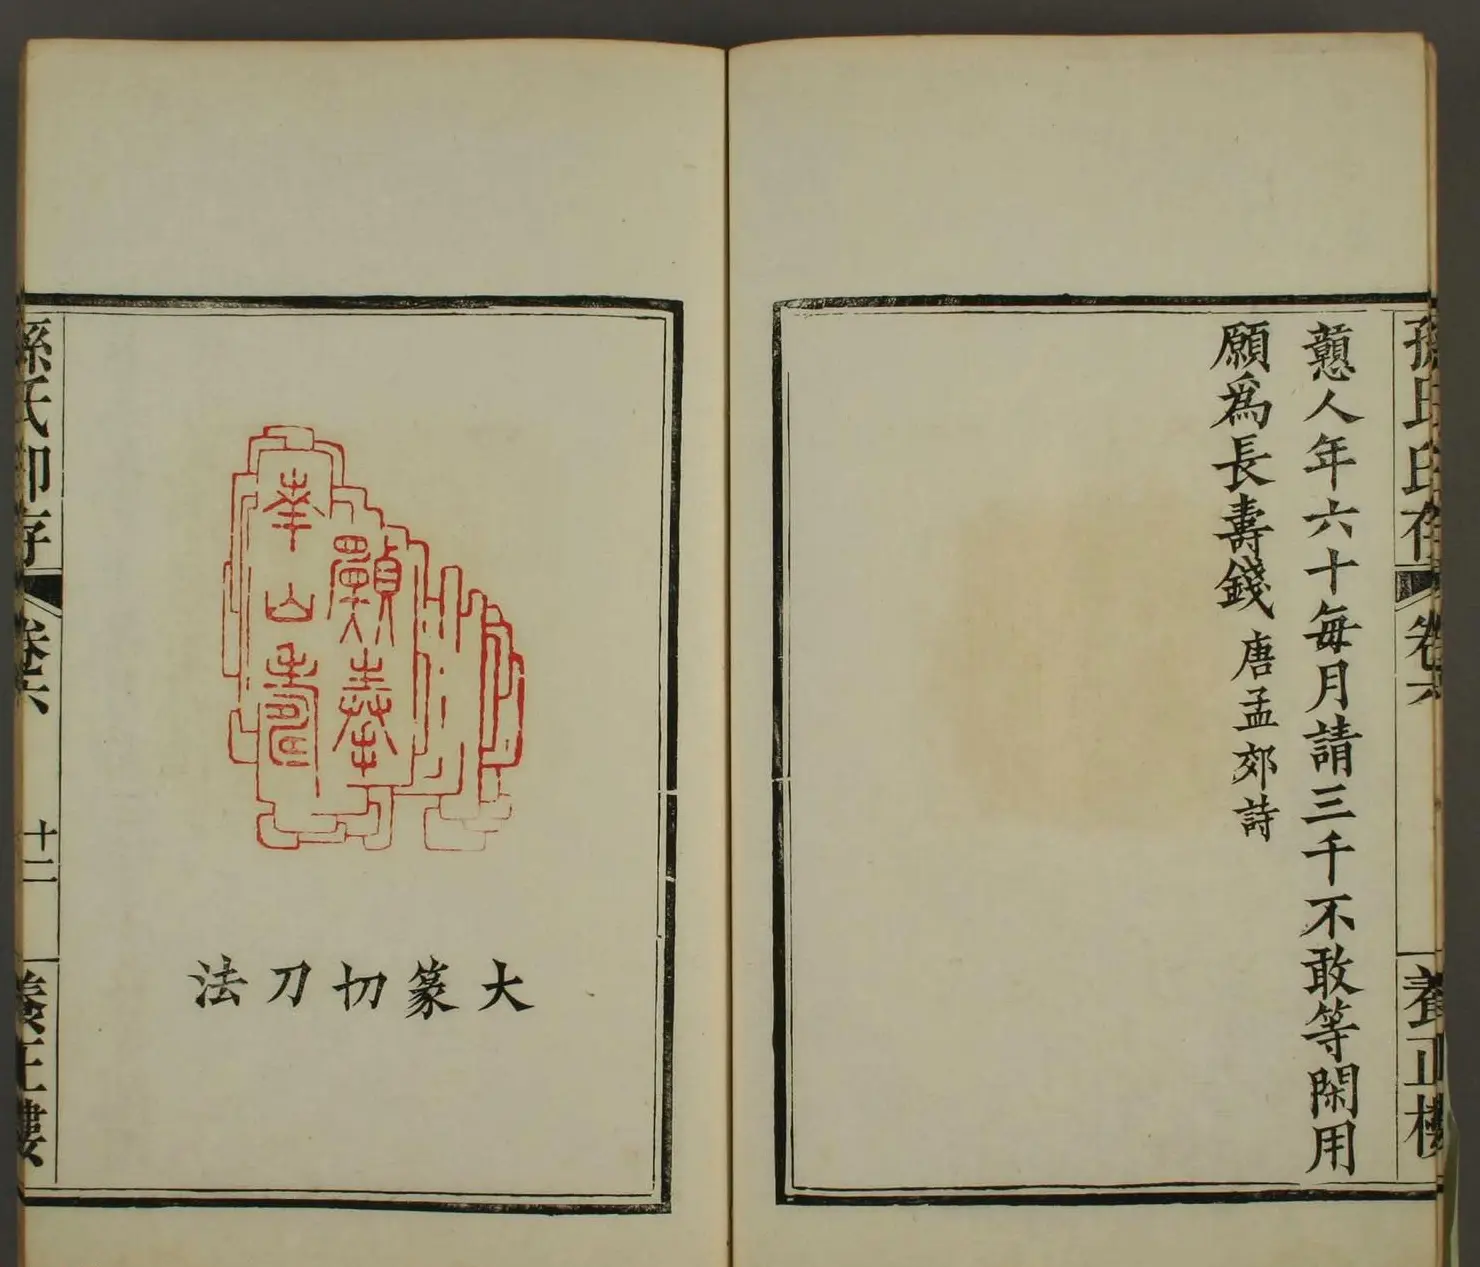 孫氏印存 卷六 養正樓
戇人年六十每月請三千不敢等閑用
願爲長壽錢 唐孟郊詩
願奉
華山壽
大篆切刀法
孫氏印存 卷六 十二 養正樓